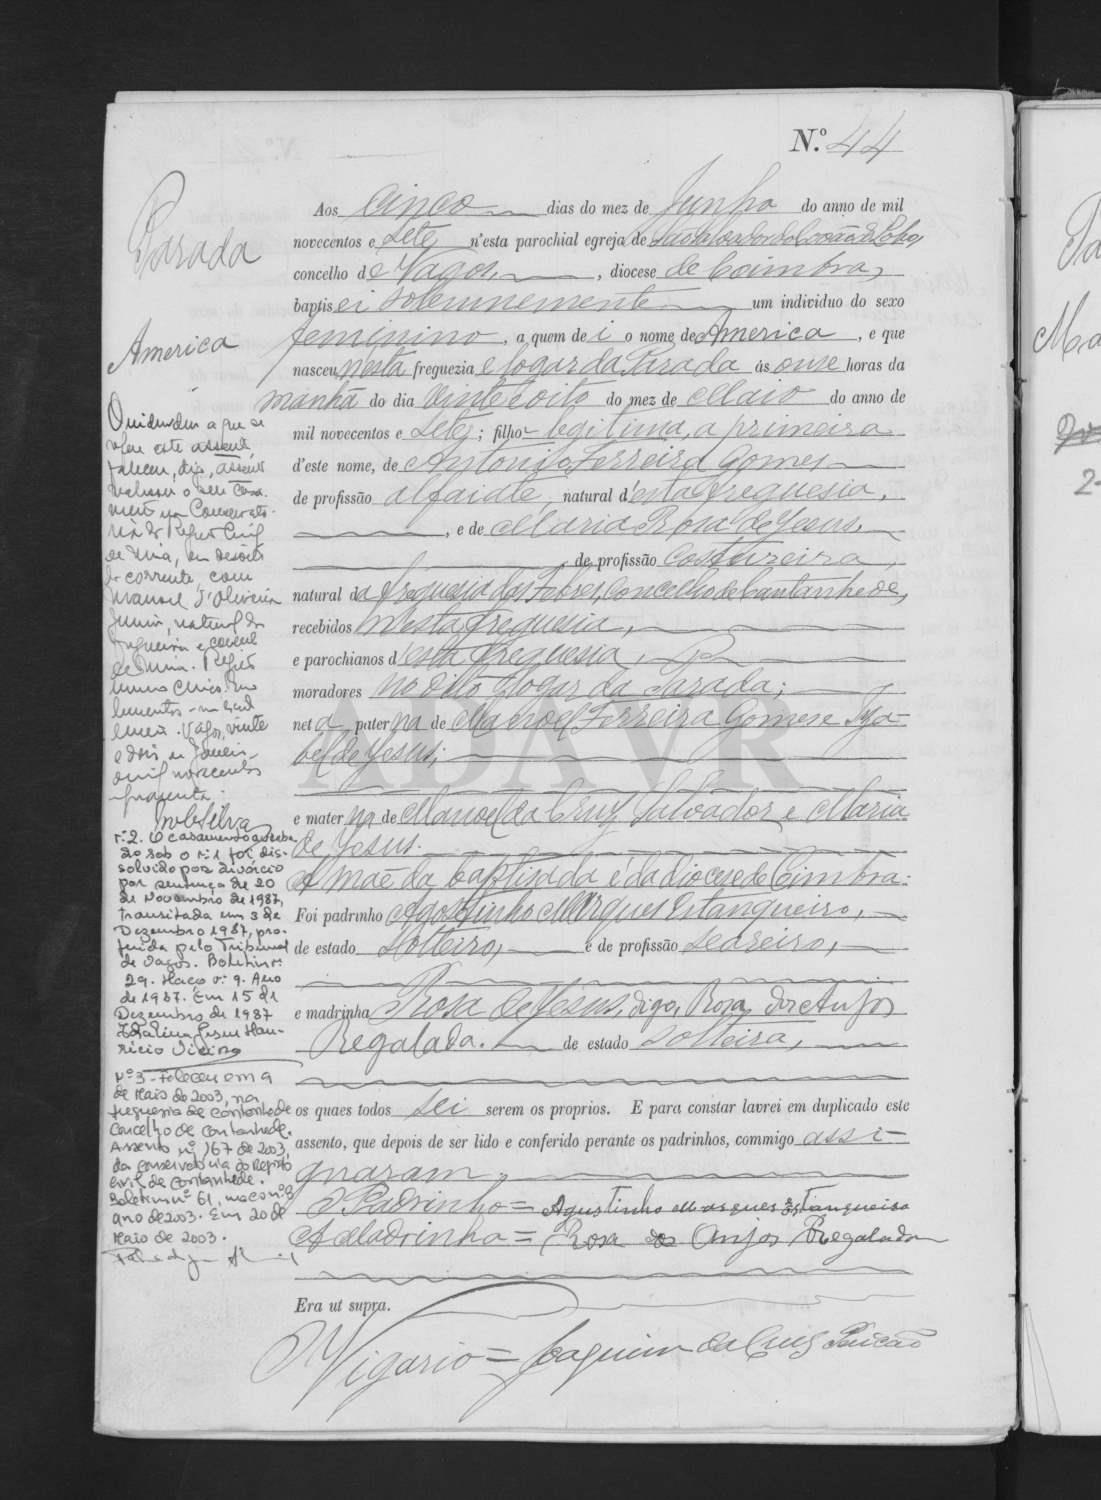 N.º 44
Parada
America
Aos cinco dias do mez de Junho do anno de mil
novecentos e sete n'esta parochial egreja de
concelho de Vagos, diocese de Coimbra,
baptisei solemnemente um individuo do sexo
feminino, a quem dei o nome de America, e que
nasceu nesta freguezia e logar da Parada ás onze horas da
manhã do dia vinte e oito do mez de Maio do anno de
mil novecentos e sete; filha legitima, a primeira
d'este nome, de Antonio Ferreira Gomes
de profissão alfaiate, natural d'esta freguesia,
, e de Maria Rosa de Jesus,
de profissão costureira,
natural da freguesia das Febres, concelho de Cantanhede,
recebidos n'esta freguesia,
e parochianos d'esta freguesia,
moradores no dito logar da Parada;
neta paterna de Manoel Ferreira Gomes e Iza-
bel de Jesus;
e materna de Manoel da Cruz Salvador e Maria
de Jesus.
A mãe da baptisada é da diocese de Coimbra.
Foi padrinho Agostinho Marques Estanqueiro,
de estado solteiro, e de profissão seareiro,
e madrinha Rosa de Jesus, digo, Rosa dos Anjos
Regalada. de estado solteira,
os quaes todos sei serem os proprios. E para constar lavrei em duplicado este
assento, que depois de ser lido e conferido perante os padrinhos, commigo assi-
gnaram.
O Padrinho = Agustinho Marques Estanqueiro
A Madrinha = Rosa dos Anjos Regalada
Era ut supra.
O Vigario = Joaquim da Cruz
O individuo a que se
refere este assento,
digo, assento
realisou o seu casa-
mento na Conservato-
ria do Registo Civil
de Mira, em dezoito
do corrente, com
Manuel d'Oliveira
Junior, natural da
freguesia e concelho
de Mira. Registo
numero cinco.
Vagos, vinte
e dois de Janeiro
de mil novecentos
e quarenta.
n.º 2. O casamento averba-
do sob o n.º 1 foi dis-
solvido por divórcio
por sentença de 20
de Novembro de 1987,
transitada em 3 de
Dezembro 1987, pro-
ferida pelo Tribunal
de Vagos. Boletim n.º
29. Maço n.º 9. Ano
de 1987. Em 15 de
Dezembro de 1987
Nº 3 - Faleceu em 9
de Maio de 2003, na
freguesia de Cantanhede
Concelho de Cantanhede.
Assento nº 167 de 2003,
da conservatória do Registo
Civil de Cantanhede.
Boletim nº 61, maço nº 3
ano de 2003. Em 20 de
Maio de 2003.
ADAVR